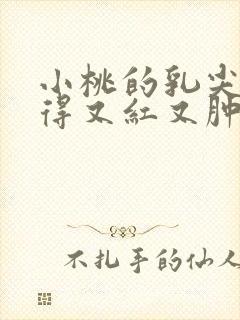 小桃的乳尖
得又红又肿
不扎手的仙人